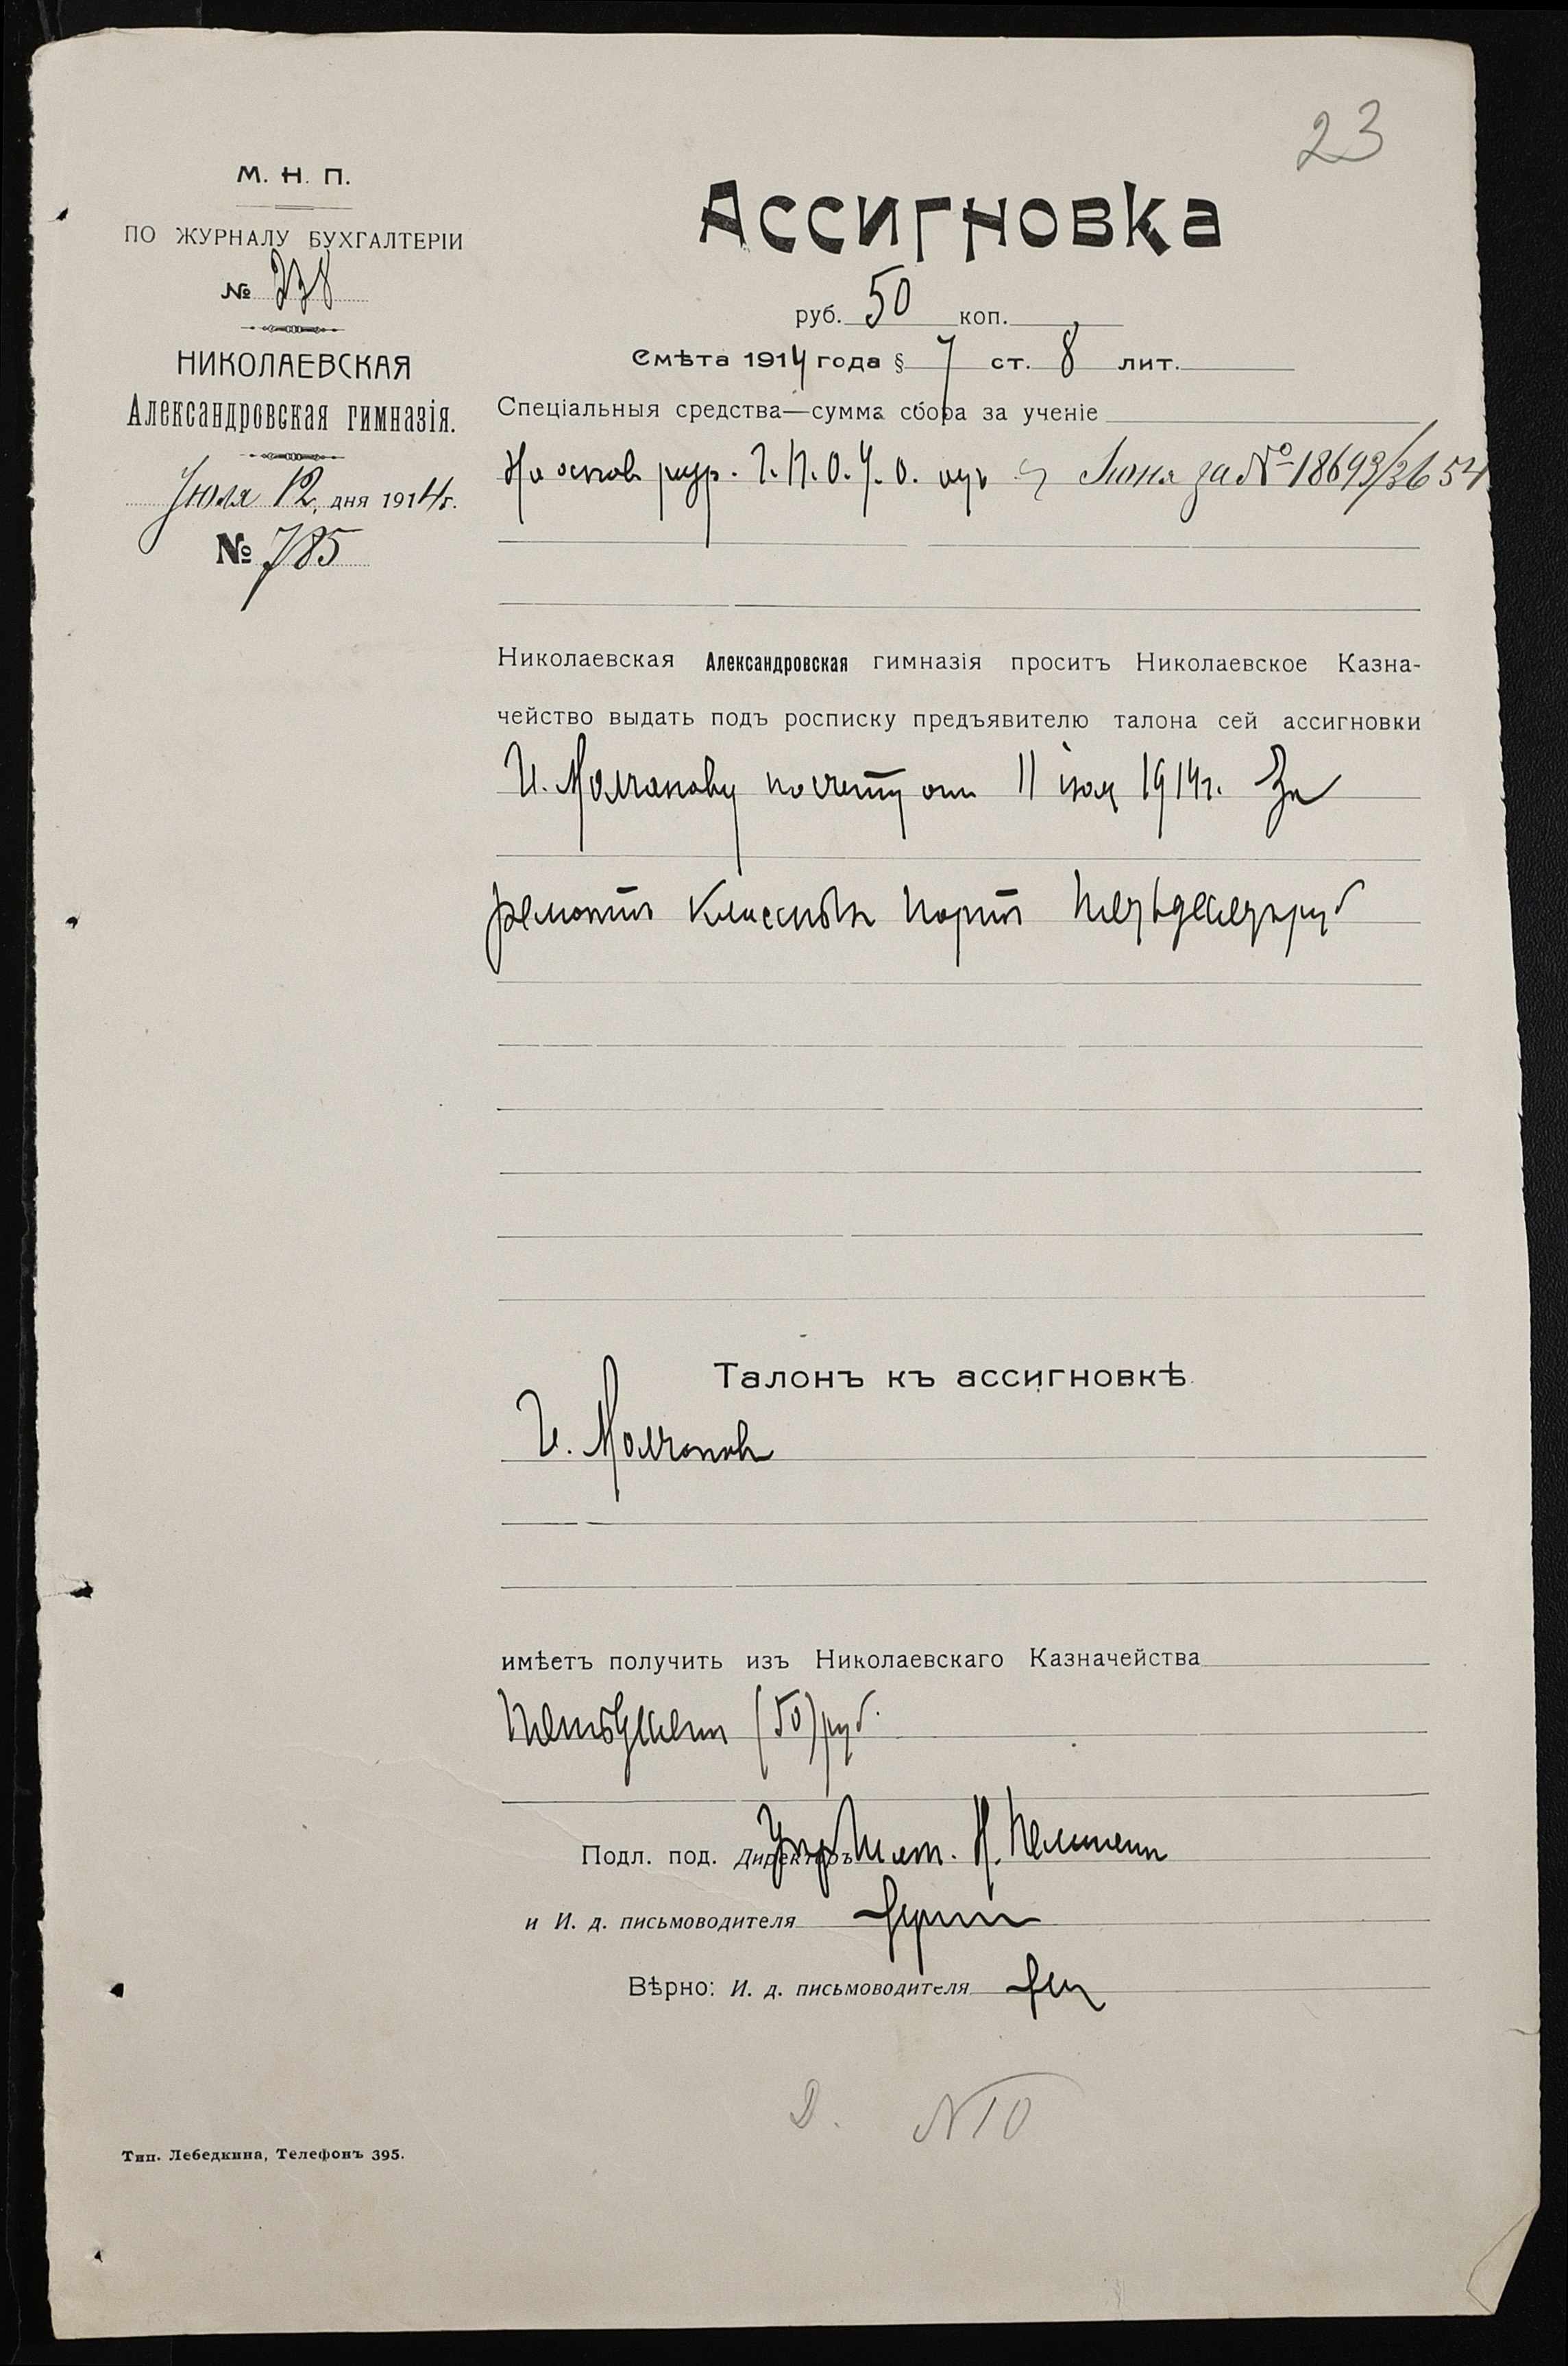 23
М. Н. П.
ПО ЖУРНАЛУ БУХГАЛТЕРІИ
№ 238
НИКОЛАЕВСКАЯ
Александровская гимназія.
Іюля 12, дня 1914 г.
№ 785
Ассигновка
руб. 50 коп.
Смѣта 1914 года § 7 ст. 8 лит.
Спеціальныя средства—сумма сбора за ученіе
На основ. г. П. О. У. О. отъ Іюня за № 18693/3654
Николаевская Александровская гимназія проситъ Николаевское Казна-
чейство выдать подъ росписку предъявителю талона сей ассигновки
И. Молчанову по счету отъ 11 іюля 1914 г. За
ремонтъ классныхъ партъ Пятьдесятъ руб
Талонъ къ ассигновкѣ
И. Молчановъ
имѣетъ получить изъ Николаевскаго Казначейства
Пятьдесятъ (50) руб.
Подл. под. Директоръ Н.
и И. д. письмоводителя
Вѣрно: И. д. письмоводителя
Д. №10
Тип. Лебедкина, Телефонъ 395.